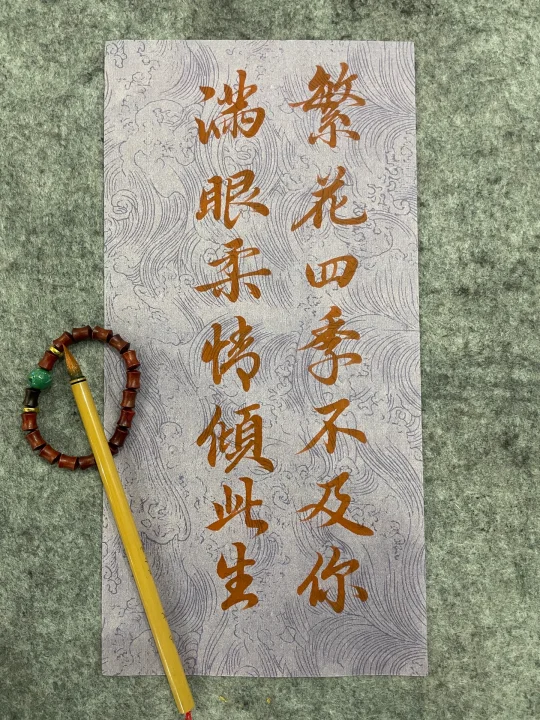 繁花四季不及你
满眼柔情倾此生